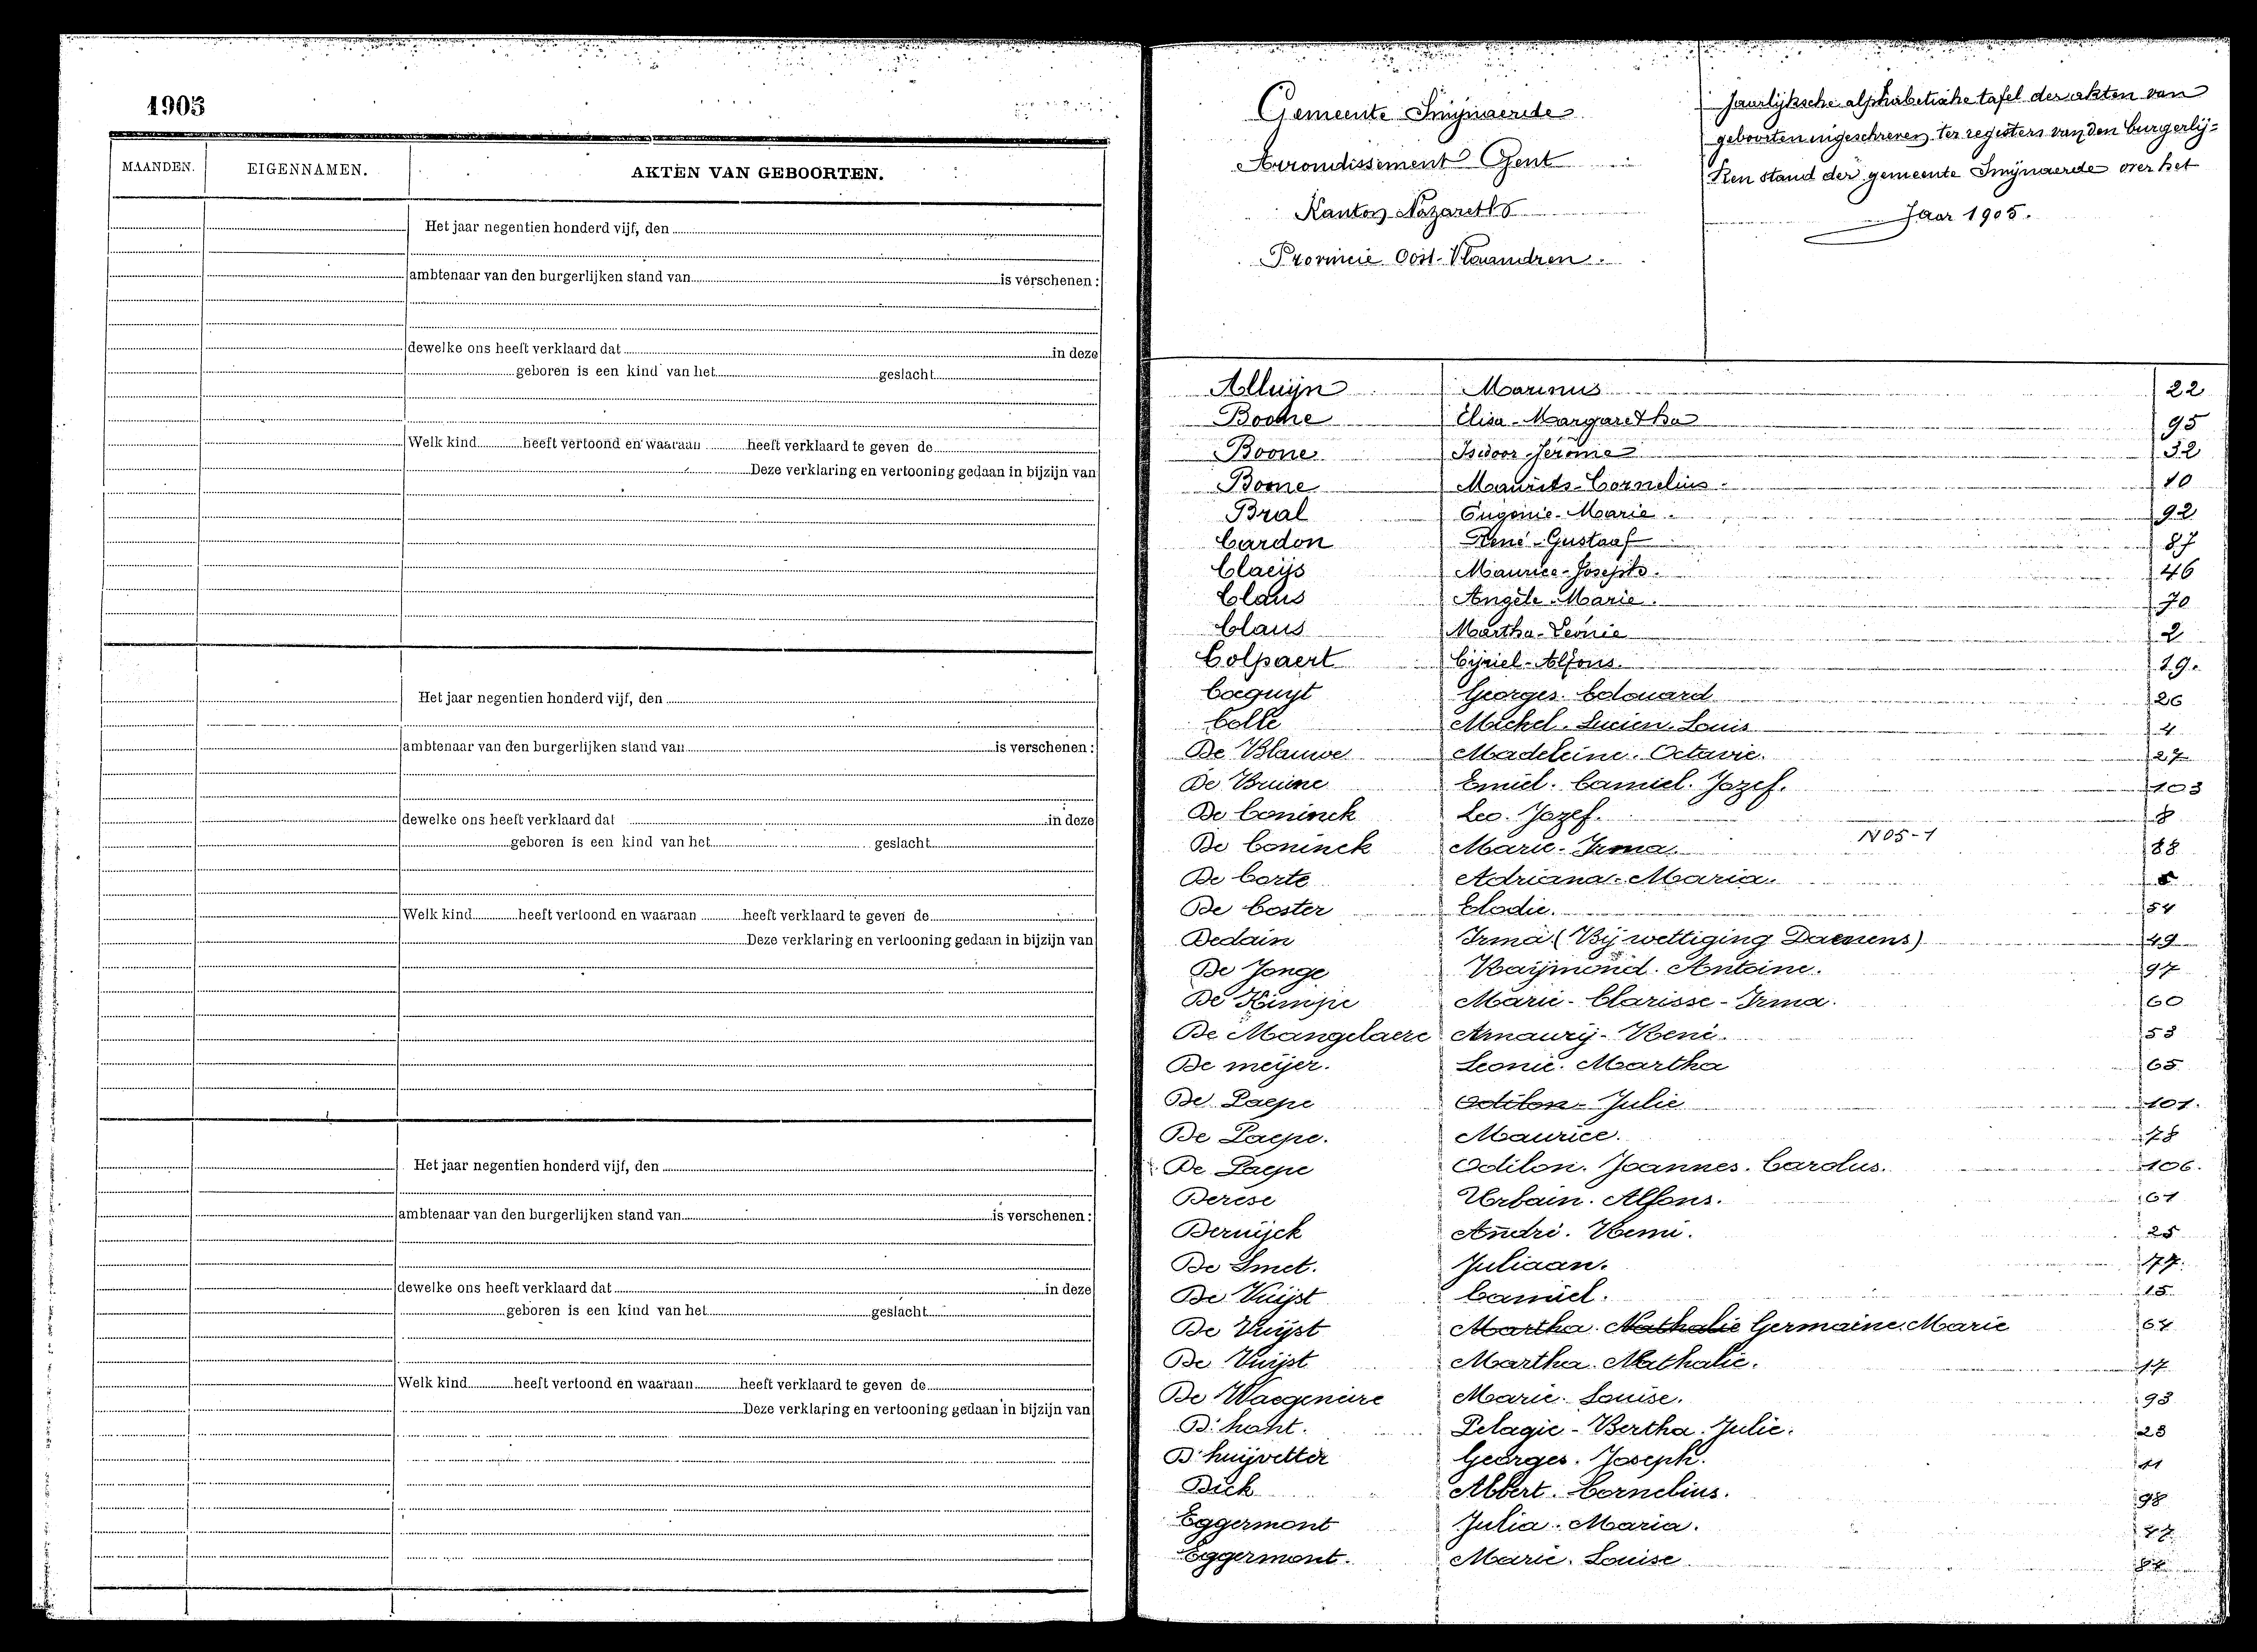 1905
MAANDEN. EIGENNAMEN. AKTEN VAN GEBOORTEN.
Het jaar negentien honderd vijf, den
ambtenaar van den burgerlijken stand van is verschenen :
dewelke ons heeft verklaard dat in deze
geboren is een kind van het geslacht
Welk kind heeft vertoond en waaraan heeft verklaard te geven de
Deze verklaring en vertooning gedaan in bijzijn van
Het jaar negentien honderd vijf, den
ambtenaar van den burgerlijken stand van is verschenen :
dewelke ons heeft verklaard dat in deze
geboren is een kind van het geslacht
Welk kind heeft vertoond en waaraan heeft verklaard te geven de
Deze verklaring en vertooning gedaan in bijzijn van
Het jaar negentien honderd vijf, den
ambtenaar van den burgerlijken stand van is verschenen :
dewelke ons heeft verklaard dat in deze
geboren is een kind van het geslacht
Welk kind heeft vertoond en waaraan heeft verklaard te geven de
Deze verklaring en vertooning gedaan in bijzijn van
Gemeente Swijnaerde
Arrondissement Gent
Kanton Nazareth
Provincie Oost-Vlaandren.
Jaarlijksche alphabetische tafel der akten van
geboorten ingeschreven ter registers van den burgerlij=
ken stand der gemeente Swijnaerde over het
Jaar 1905.
Alluijn Marinus 22
Boone Elisa-Margaretha 95
Boone Isidoor Jérôme 32
Boone Maurits-Cornelius 10
Bral Eugenie-Marie 92
Cardon René-Gustaaf 87
Claeijs Maurice-Joseph 46
Claus Angèle-Marie 70
Claus Martha-Leonie 2
Colpaert Cijriel-Alfons 19.
Coeguyt Georges. Edouard 26
Colle Michel. Lucien. Louis 4
De Blauwe Madeleine. Octavie. 27
De Bruine Emiel. Camiel. Jozef. 103
De Coninck Leo. Jozef. 8
De Coninck Marie-Irma. N05-1 88
De Corte Adriana-Maria.
De Coster Elodie. 54
Dedain Irma (Bij wettiging Daenens) 49
De Jonge Raijmond. Antoine. 97
De Kimpe Marie-Clarisse-Irma. 60
De Mangelaere Amaurij-René. 53
De meijer. Leonie. Martha 65
De Paepe Odilon-Julie 101.
De Paepe. Maurice. 78
De Paepe Odilon. Joannes. Carolus. 106.
Derese Urbain. Alfons. 61
Deruijck André. Remi. 25
De Smet. Juliaan. 77.
De Vuijst Camiel. 15
De Vuijst Martha. Nathalie Germaine. Marie 64
De Vuijst Martha. Nathalie. 17
De Waegeneire Marie. Louise. 93
D'hont. Pelagie-Bertha. Julie. 23
D'huijvetter Georges. Joseph. 11
Dick Albert. Cornelius. 98
Eggermont Julia. Maria.
Eggermont. Marie. Louise